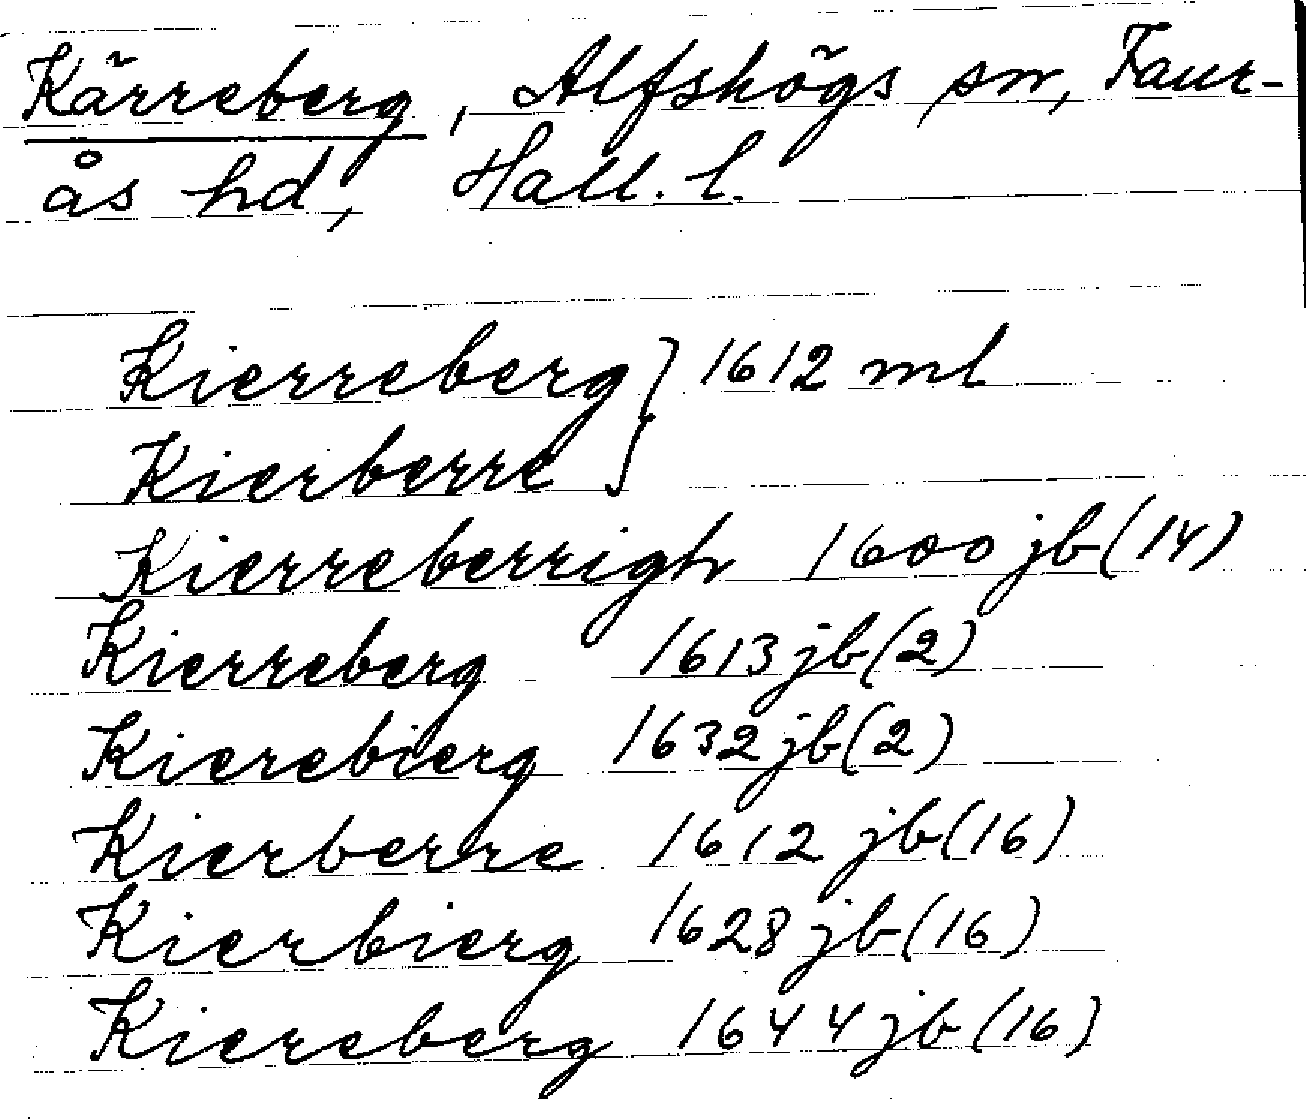 Kärreberg, Alfshögs sn, Faur-
ås hd, Hall. l.
Kierreberg } 1612 ml
Kierberre
Kierreberrigh 1600 jb (14)
Kierreberg 1613 jb (2)
Kierebierg 1632 jb (2)
Kierberre 1612 jb (16)
Kierbierg 1628 jb (16)
Kiereberg 1644 jb (16)